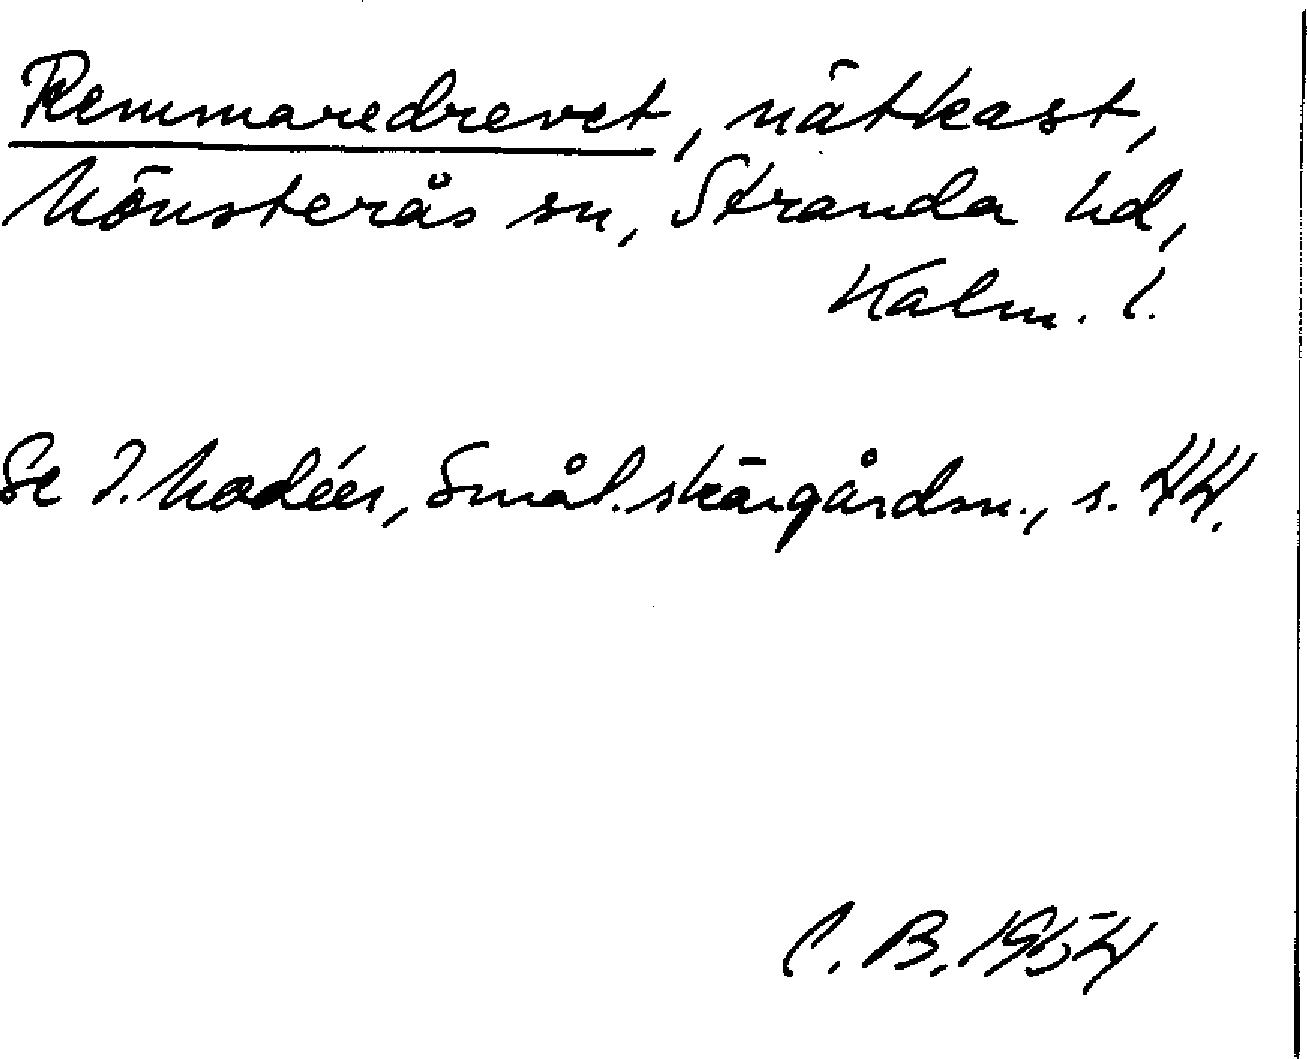 Remmaredrevet, nätkast,
Mönsterås sn, Stranda hd,
Kalm. l.
Se I. Modéer, Smål. skärgårdsn., s. 44.
C. B. 1954